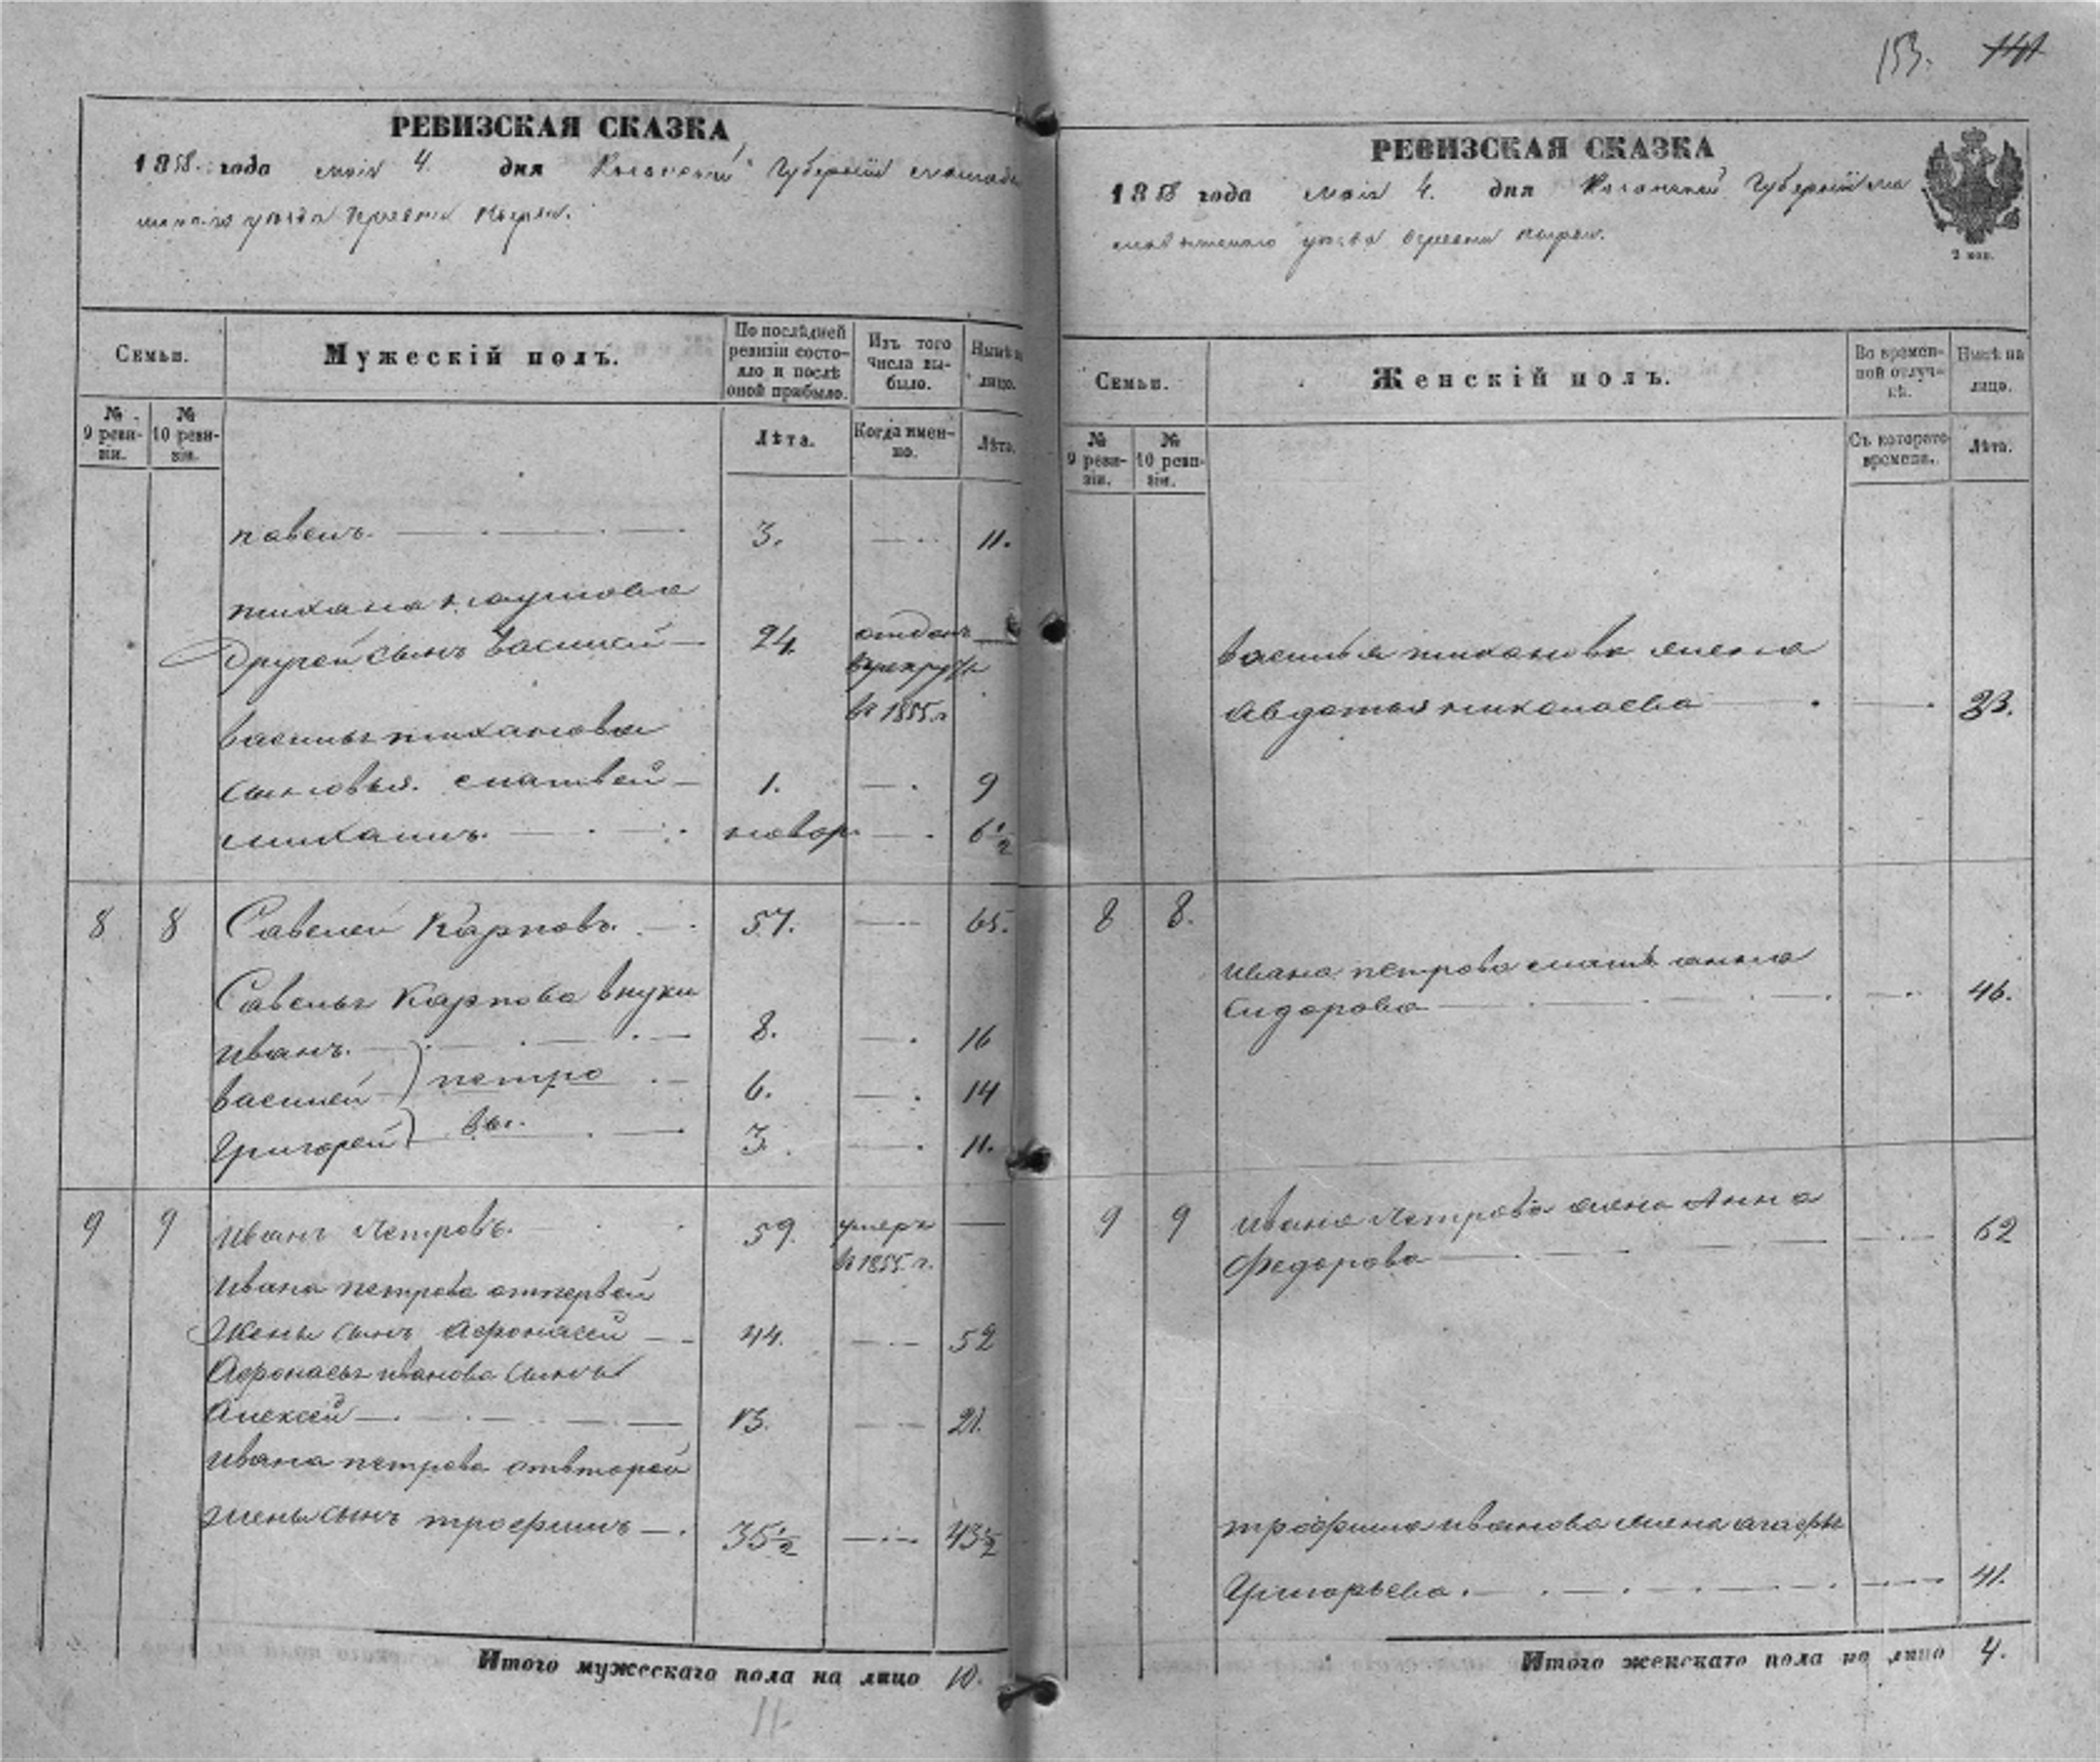 153. 141
РЕВИЗСКАЯ СКАЗКА
1858 года мая 4. дня Казанской Губернии мамады
шскаго уезда деревни
Семьи.
Мужескій полъ.
По послѣдней ревизіи состояло и послѣ оной прибыло.
Изъ того числа выбыло.
Нынѣ на лицо.
№ 9 ревизіи.
№ 10 ревизіи.
Лѣта.
Когда именно.
Лѣта.
павелъ. 3. 11.
тихана наумова
другой сынъ василей 24. отданъ
в рекруты
в 1855 г
василья тиханова
сыновья. матвей 1. 9
михаилъ. новор. 6 1/2
8 8 Савелей Карповъ. 57. 65.
Савелья Карпова внуки
иванъ. 8. 16
василей петро 6. 14
Григорей вы. 3. 11.
9 9 иванъ Петровъ. 59. умеръ
в 1855 г.
ивана петрова отпервой
жены сынъ Афонасей 44. 52
Афонасья иванова сынъ
Алексей 13. 21.
ивана петрова отвторой
жены сынъ трофимъ 35 1/2 43 1/2
Итого мужескаго пола на лицо 10.
11.
РЕВИЗСКАЯ СКАЗКА
1858 года мая 4. дня Казанской Губернии ма
мадышскаго уезда деревни
2 коп.
Семьи.
Женскій полъ.
Во временной отлучкѣ.
Нынѣ на лицо.
№ 9 ревизіи.
№ 10 ревизіи.
Съ котораго времени.
Лѣта.
василья тиханова жена
авдотья николаева 33.
8 8.
ивана петрова мать анна
Сидорова 46.
9 9 ивана Петрова жена Анна
Федорова 62
трофима иванова жена агафья
Григорьева. 41.
Итого женскаго пола на лицо 4.